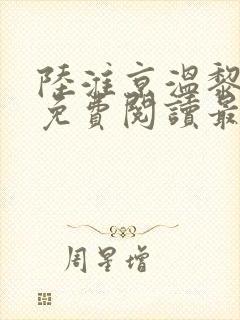 陸淮京溫黎
免費閱讀最
周星增